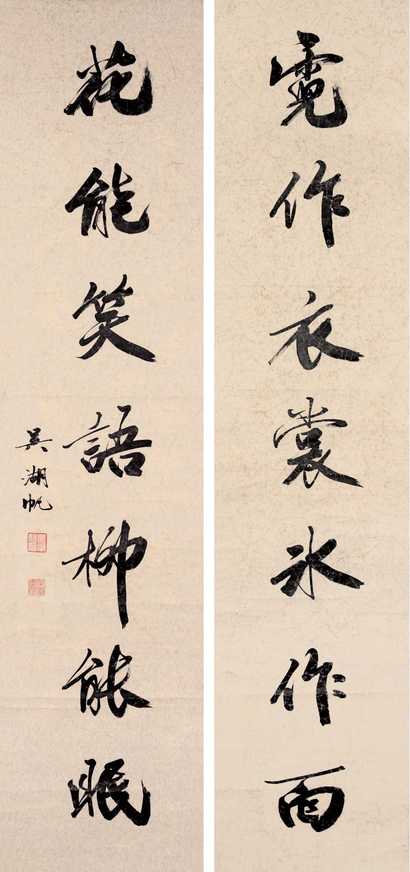 霓作衣裳冰作面
花能笑語柳能眠
吳湖帆